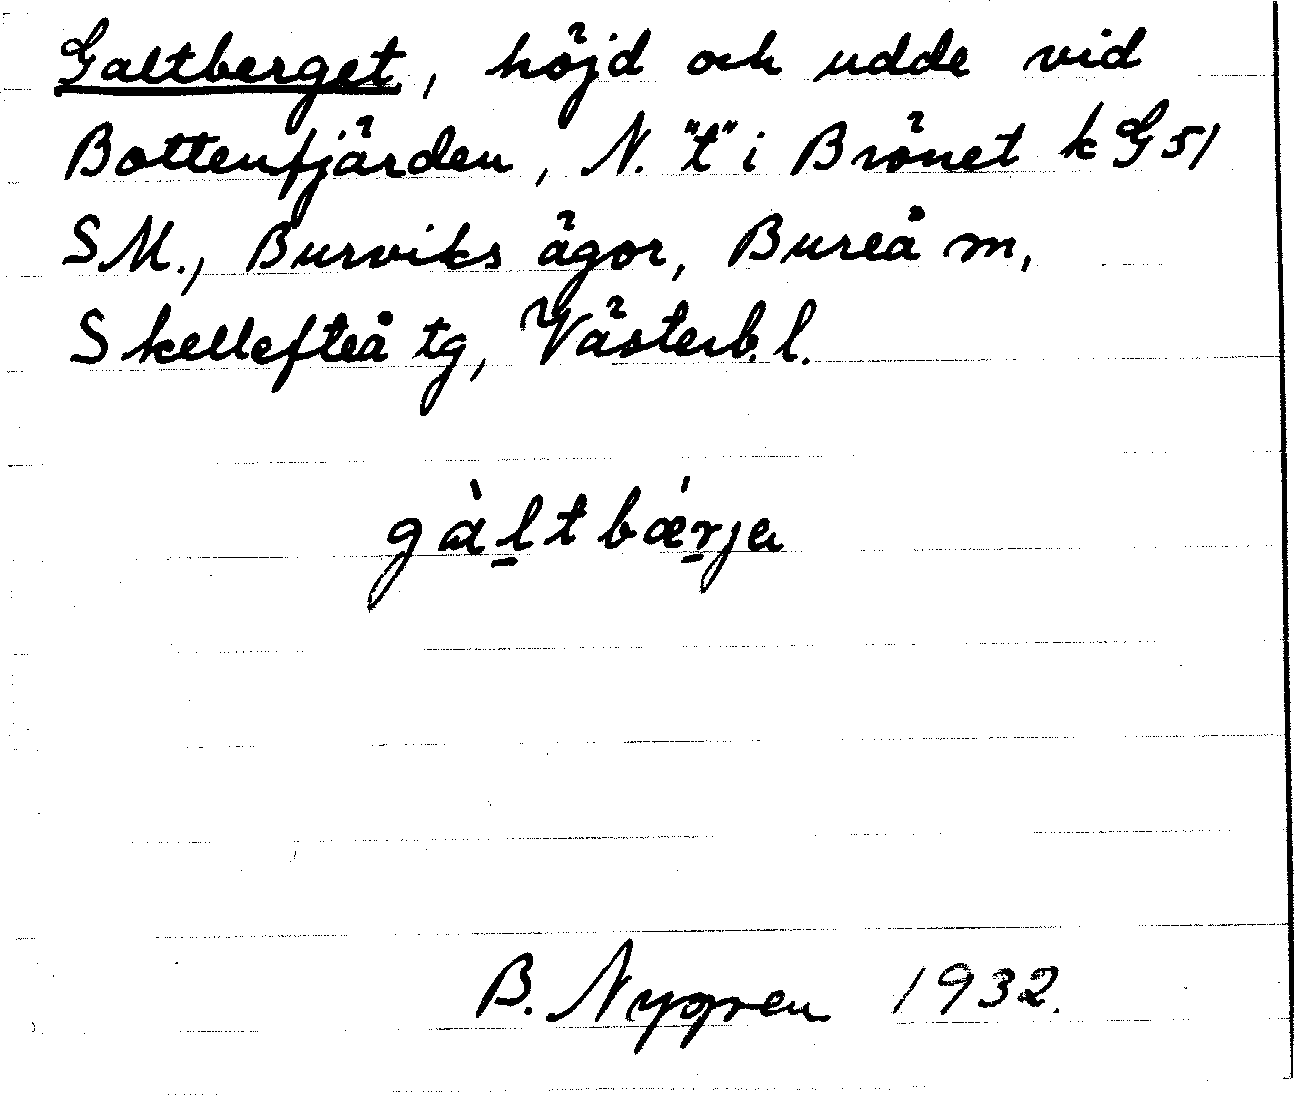 Galtberget, höjd och udde vid
Bottenfjärden, N. "t" i Brönet k G 51
SM., Burviks ägor, Bureå m,
Skellefteå tg, Västerb. l.
gàltbǽrja
B. Nygren 1932.